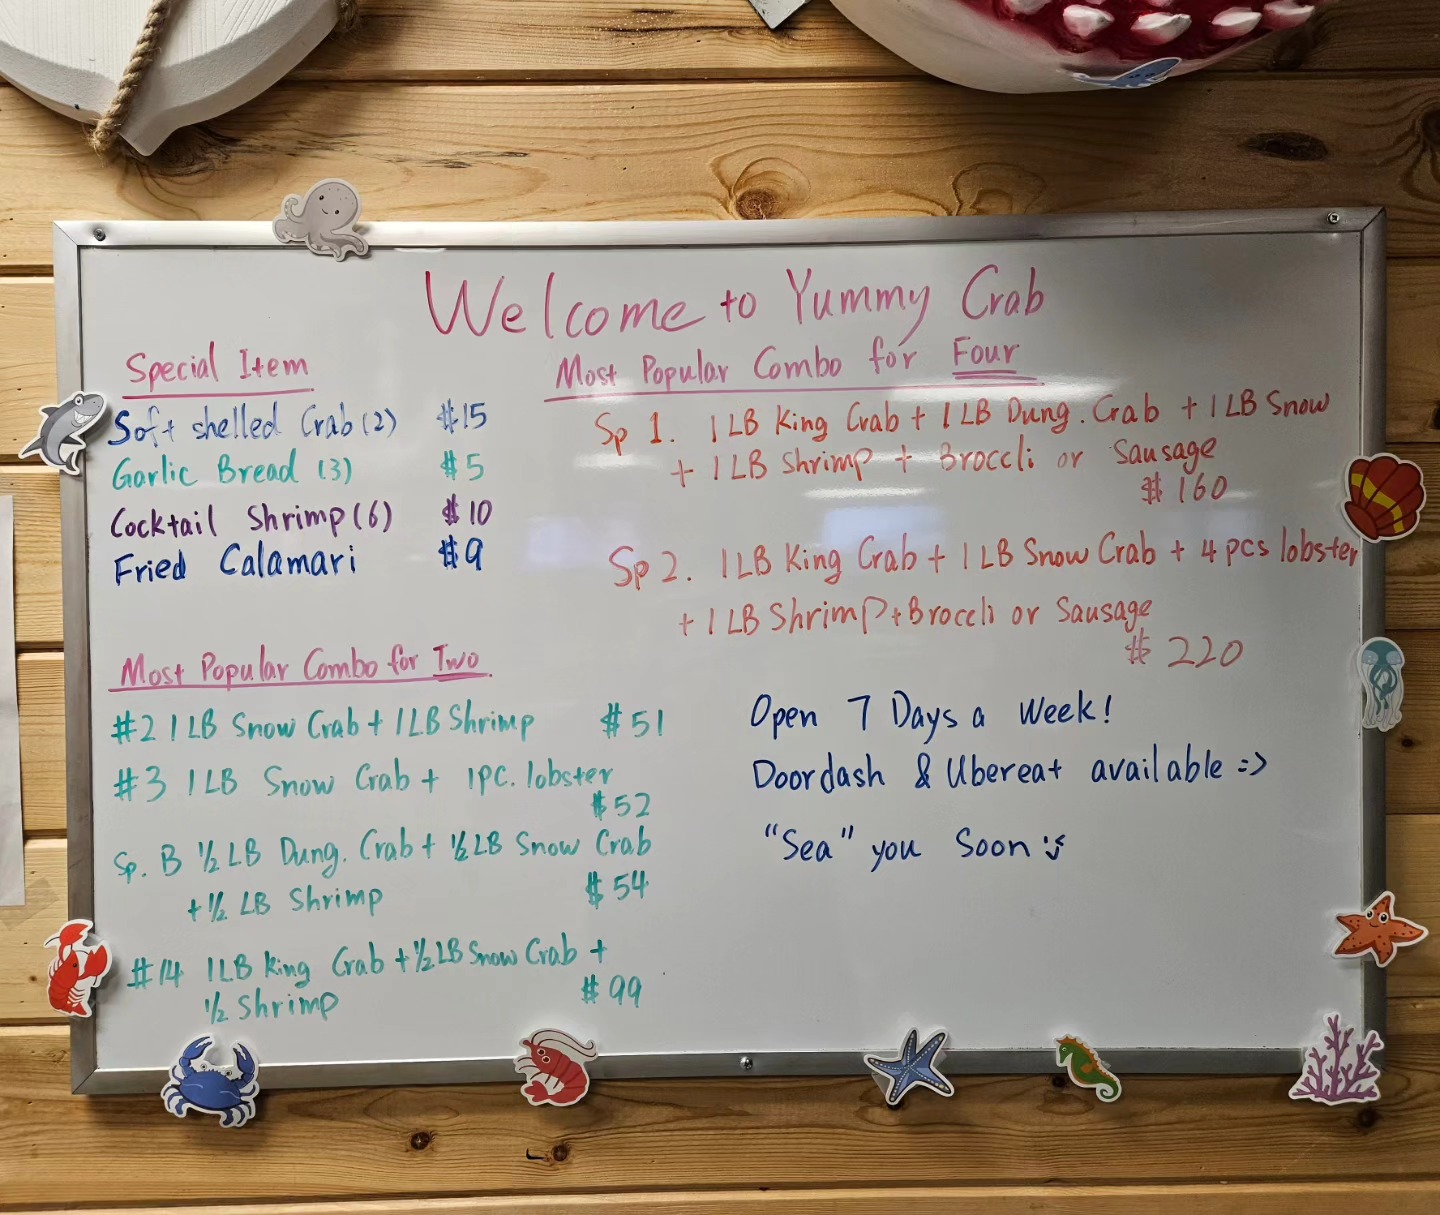 Welcome to Yummy Crab
Special Item
Soft shelled Crab (2) $15
Garlic Bread (3) $5
Cocktail Shrimp (6) $10
Fried Calamari $9
Most Popular Combo for Two
#2 1 LB Snow Crab + 1 LB Shrimp $51
#3 1 LB Snow Crab + 1 PC. lobster
$52
Sp. B ½ LB Dung. Crab + ½ LB Snow Crab
+ ½ LB Shrimp $54
#14 1 LB King Crab + ½ LB Snow Crab +
½ Shrimp $99
Most Popular Combo for Four
Sp 1. 1 LB King Crab + 1 LB Dung. Crab + 1 LB Snow
+ 1 LB Shrimp + Broccli or Sausage
$160
Sp 2. 1 LB King Crab + 1 LB Snow Crab + 4 pcs lobster
+ 1 LB Shrimp + Broccli or Sausage
$220
Open 7 Days a Week!
Doordash & Ubereat available =>
"Sea" you Soon